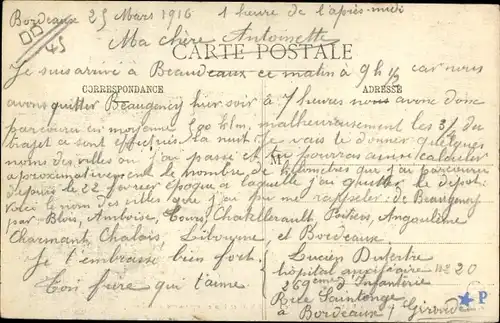 Bordeaux 25 Mars 1916 1 heure de l'après-midi
45
Ma chère Antoinette
CARTE POSTALE
Je suis arrivé à Beaudeaux ce matin à 9h ½ car nous
CORRESPONDANCE ADRESSE
avons quitter Beaugency hier soir à 7 heures nous avons donc
parcouru en moyenne 580 klm, malheureusement les 3/4 du
trajet ce sont effectués la nuit Je vais te donner quelques
noms des villes ou j'ai passé et tu pourras ainsi calculer
aproximativement le nombre de kilomètres que j'ai parcouru
depuis le 22 février époque a laquelle j'ai quitter le dépot.
Voici le nom des villes que j'ai pu me rappeler: de Beaugency
par Blois, Amboise, Tours, Chatellerault, Poitiers, Angoulème
Charmant, Chalais, Libourne, et Bordeaux.
Je t'embrasse bien fort.
Ton frère qui t'aime
Lucien Dufertre
hôpital auxiliaire N° 20
269eme d'Infanterie
Rue Saintonge
à Bordeaux Gironde
P